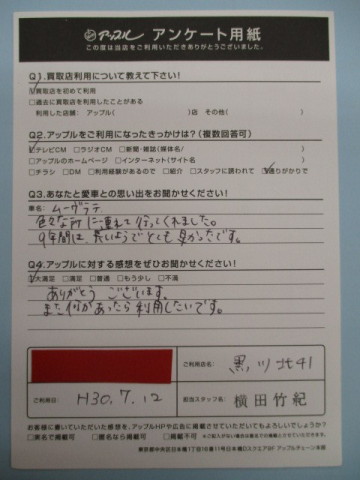 アップル アンケート用紙
この度は当店をご利用いただきありがとうございました。
Q1.買取店利用について教えて下さい!
☑買取店を初めて利用
□過去に買取店を利用したことがある
利用した店舗: アップル( )店 その他( )
Q2.アップルをご利用になったきっかけは?(複数回答可)
☑テレビCM □ラジオCM □新聞・雑誌(媒体名/ )
□アップルのホームページ □インターネット(サイト名 )
□チラシ □DM □利用経験があるので □紹介 □スタッフに誘われて ☑通りがかりで
Q3.あなたと愛車との思い出をお聞かせください!
車名: ムーヴラテ
色々な所に連れて行ってくれました。
9年間は長いようでとても早かったです。
Q4.アップルに対する感想をぜひお聞かせください!
☑大満足 □満足 □普通 □もう少し □不満
ありがとうございます。
また何かあったら利用したいです。
ご利用店名: 黒川北41
ご利用日: H30.7.12
担当スタッフ名: 横田竹紀
お客様に書いていただいた感想を、アップルHPや広告に掲載させていただいてもよろしいでしょうか?
□実名で掲載可 □匿名なら掲載可 □掲載不可
東京都中央区日本橋1丁目16番11号日本橋Dスクエア8F アップルチェーン本部